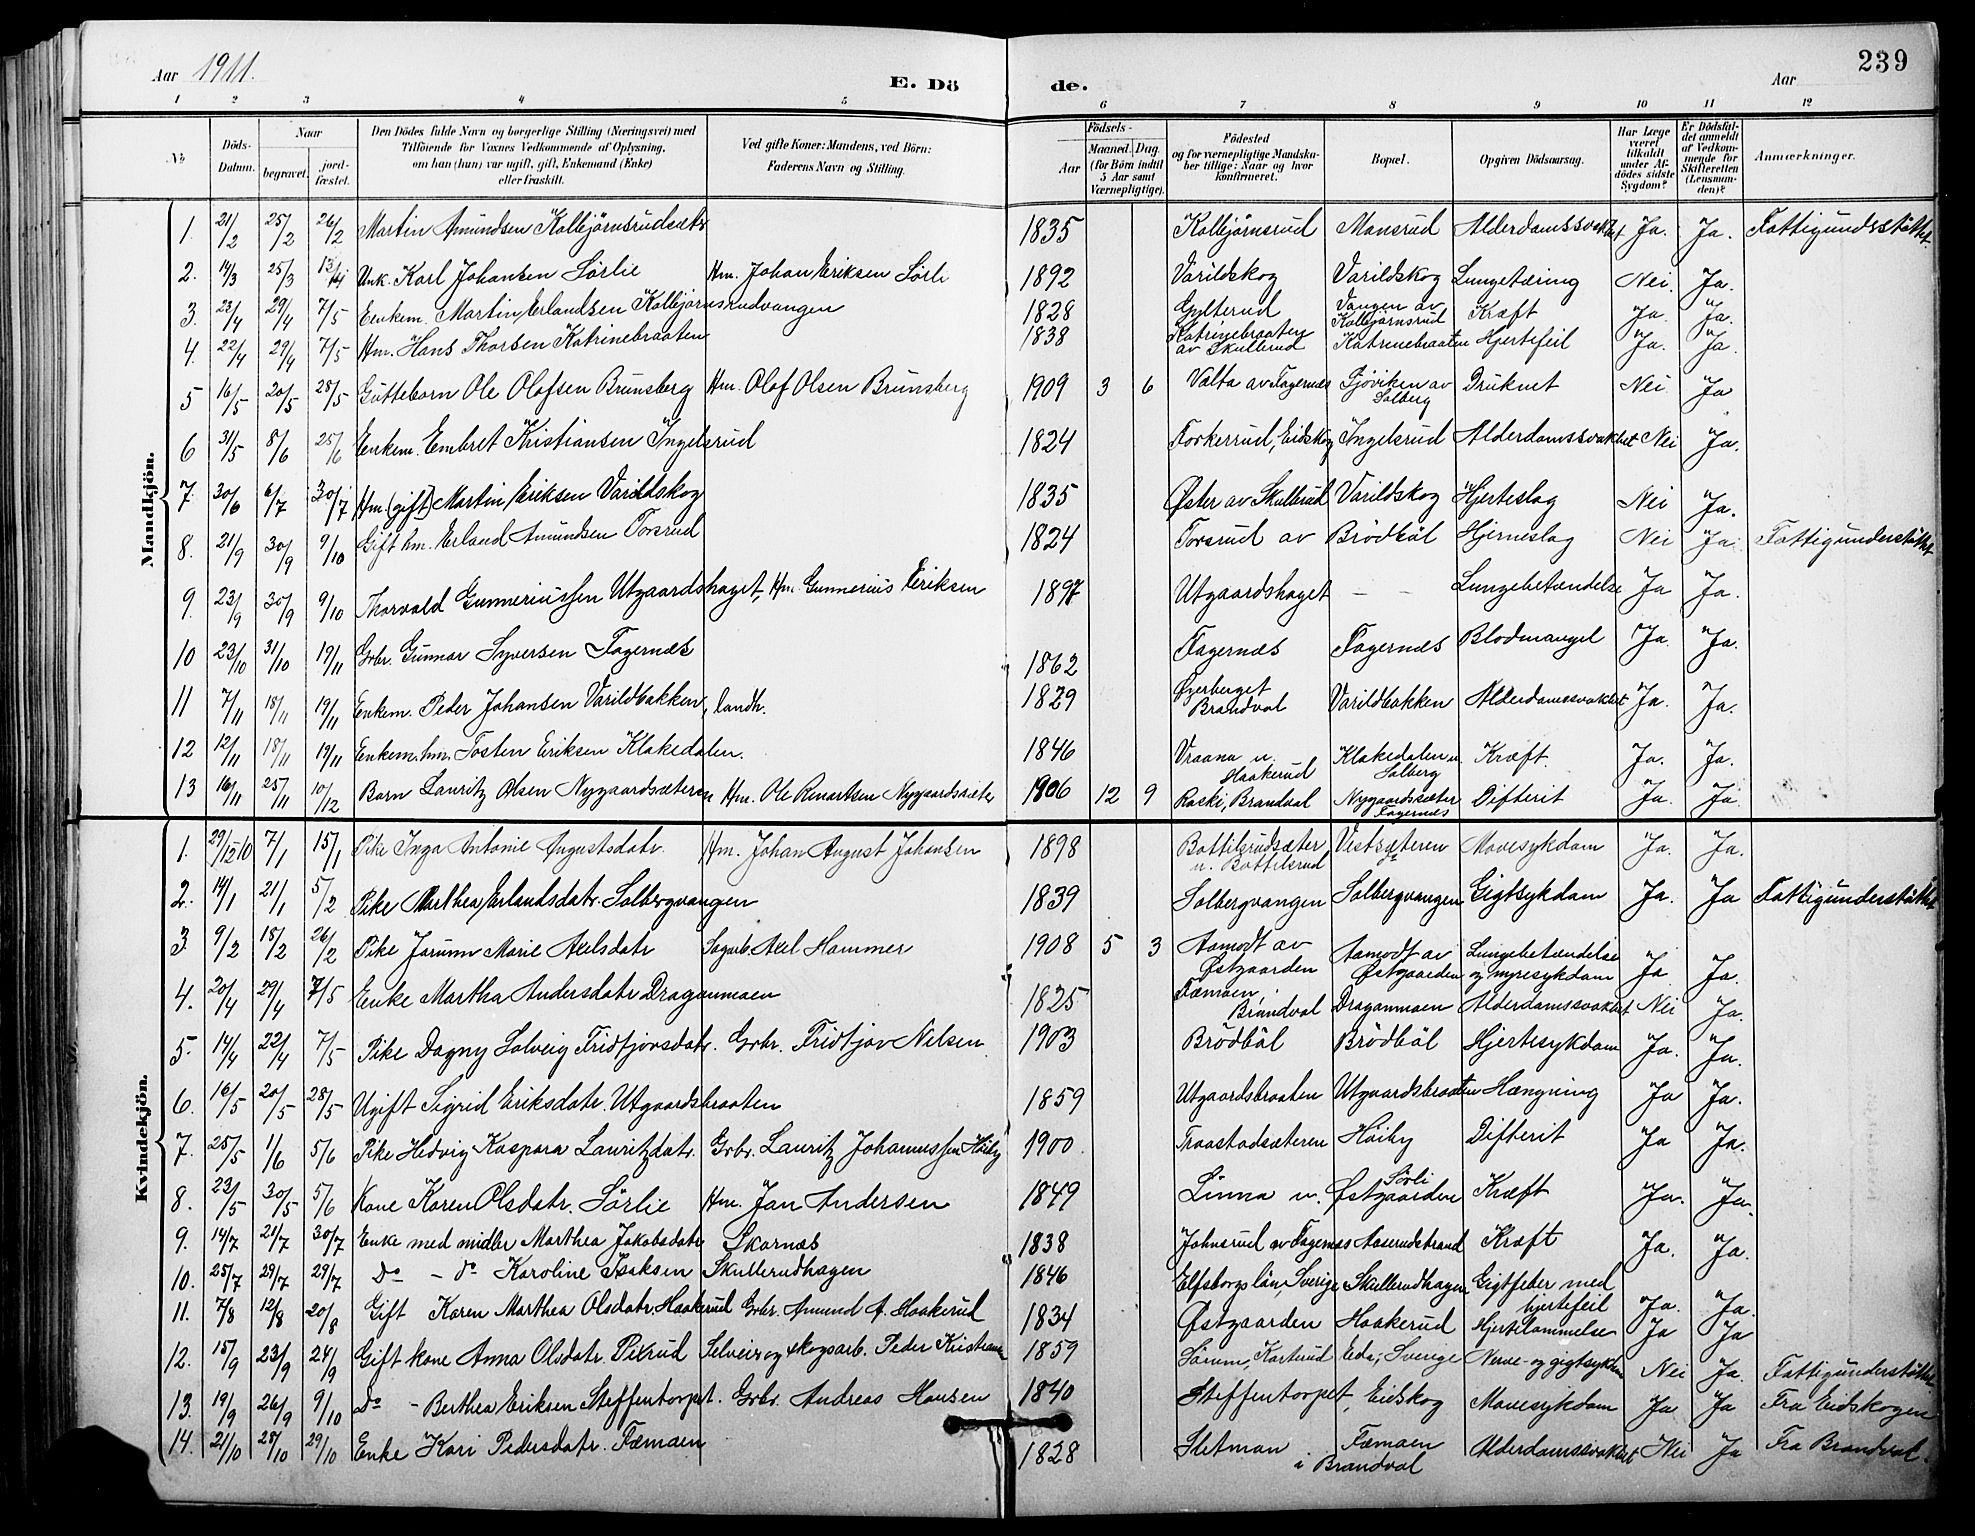 Aar 1911.
E. Dö
de.
Aar
239
1 2 3 4 5 6 7 8 9 10 11 12
№
Döds-Datum.
Naar
begravet.
jord-fæstet.
Den Dödes fulde Navn og borgerlige Stilling (Næringsvei) med
Tilföiende för Voxnes Vedkommende af Oplysning,
om han (hun) var ugift, gift, Enkemand (Enke)
eller fraskilt.
Ved gifte Koner: Mandens, ved Börn:
Faderens Navn og Stilling.
Födsels-
Aar
Maaned. Dag.
(for Börn indtil
5 Aar samt
Værnepligtige).
Födested
og for værnepligtige Mandska-
ber tillige: Naar og hvor
konfirmeret.
Bopæl.
Opgiven Dödsaarsag.
Har Læge
været
tilkaldt
under Af-
dödes sidste
Sygdom?
Er Dödsfal-
det anmeldt
af Vedkom-
mende for
Skifteretten
(Lensman-
den)?
Anmærkninger.
Mandkjön.
1. 21/2 25/2 26/2 Martin Amundsen Kolbjörnsrudsæter 1835 Kolbjörnsrud Mansrud Alderdomssvakhet Ja. Ja. Fattigundsstöttet
2. 14/3 25/3 Unk. Karl Johansen Sörlie Hm. Johan Eriksen Sörli 1892 Varildskog Varildskog Lungetæring Nei. Ja.
3. 23/4 29/4 7/5 Enkem. Martin Erlandsen Kolbjörnsrudvangen 1828 Gylterud Vangen av Kolbjörnsrud Kræft Ja. Ja.
4. 22/4 29/4 7/5 Hm. Hans Thorsen Katrinebraaten 1838 Katrinebraaten av Skullerud Katrinebraaten Hjertefeil Ja. Ja.
5 16/5 20/5 28/5 Gutteborn Ole Olafsen Brunsberg Hm. Olof Olsen Brunsberg 1909 3 6 Valta av Fagernes Sjöviken av Solberg Druknet Nei Ja
6 31/5 8/6 25/6 Enkem. Embret Kristiansen Ingelsrud 1824 Torkerrud, Eidskog Ingelsrud Alderdomssvakhet Nei Ja.
7. 30/6 6/7 30/7 Hm. (gift) Martin Eriksen Varildskog 1835 Øster av Skullerud Varildskog Hjerteslag Nei Ja.
8. 21/9 30/9 9/10 Gift hm. Erland Amundsen Torsrud 1824 Torsrud av Brödböl Hjerneslag Nei Ja Fattigunderstöttet
9. 23/9 30/9 9/10 Thorvald Gunneriussen Utgaardshaget, Hm. Gunnerius Eriksen 1897 Utgaardshaget — — Lungebetændelse Ja Ja.
10 23/10 31/10 19/11 Grbr. Gunnar Syversen Fagernæs 1862 Fagernæs Fagernæs Blodmangel Ja. Ja.
11 7/11 18/11 19/11 Enkem. Peder Johansen Varildbakken, landh. 1829 Øyerberget Brandval Varildbakken Alderdomssvakhet Ja. Ja.
12 12/11 18/11 19/11 Enkem. hm. Tosten Eriksen Klakedalen. 1846 Vraana u. Haakerud Klakedalen u. Solberg Kræft. Ja. Ja.
13 16/11 25/11 10/12 Barn Lauritz Olsen Nygaardsæteren Hm. Ole Renartsen Nygaardsæter 1906 12 9 Roski, Brandval Nygaardssæter Fagernæs Difterit Ja. Ja.
Kvindekjön.
1. 29/12 10 7/1 15/1 Pike Inga Antonie Augustsdatr. Hm. Johan August Johansen 1898 Bottilsrudsæter u. Bottilsrud Vestsæteren Mavesykdom Ja. Ja.
2. 14/1 21/1 5/2 Pike Marthea Erlandsdatr. Solbergvangen 1839 Solbergvangen Solbergvangen Gigtsykdom Ja. Ja Fattigunderstöttet
3. 9/2 18/2 26/2 Pike Jorunn Marie Axelsdatr Sagarb. Axel Hammer 1908 5 3 Aamodt av Østgaarden Aamodt av Østgaarden Lungebetændelse og nyresykdom Ja Ja.
4. 20/4 29/4 7/5 Enke Martha Andersdatr Draganmoen 1825 Fæmoen, i Brandval Draganmoen Alderdomssvakhet Nei Ja.
5. 14/4 22/4 7/5 Pike Dagny Solveig Fridtjovsdatr. Grbr. Fridtjov Nilsen 1903 Brödböl Brödböl Hjertesykdom Ja. Ja.
6. 16/5 20/5 28/5 Ugift Sigrid Eriksdatr. Utgaardsbraaten 1859 Utgaardsbraaten Utgaardsbraaten Hængning Ja Ja.
7. 25/5 1/6 5/6 Pike Hedvig Kaspara Lauritzdatr. Grbr. Lauritz Johannessen Höiby 1900 Traastadsæteren Höiby Difterit Ja Ja.
8. 23/5 30/5 5/6 Kone Karen Olsdatr. Sörlie Hm. Jan Andersen 1849 Linna u. Østgaarden Sörli Kræft Ja. Ja.
9. 14/7 21/7 30/7 Enke med midler Marthea Jakobsdatr Skarnæs 1838 Johnsrud av Fagernæs Aaserudstrand Kræft Ja. Ja.
10. 25/7 29/7 29/7 Do — do Karoline Isaksen Skullerudhagen 1846 Elfsborgs län, Sverige Skullerudhagen Gigtfeber med hjertefeil Ja. Ja.
11. 7/8 12/8 20/8 Gift Karen Marthea Olsdatr. Haakerud Grbr. Amund A. Haakerud 1834 Østgaarden Haakerud Hjertelammelse Ja Ja
12. 15/9 23/9 24/9 Gift kone Anna Olsdatr. Pilrud Selveier og skogsarb. Peder Kristiansen 1859 Sömm, Karterud Eda, Sverige Nerve- og gigtsykdom Nei Ja. Fattigunderstöttet
13. 19/9 26/9 9/10 Do — Berthea Eriksen Steffentorpet. Grbr. Andreas Hansen 1840 Steffentorpet, Eidskog Mavesykdom Ja Ja Fra Eidskogen
14. 21/10 28/10 29/10 Enke Kari Pedersdatr. Fæmoen 1828 Sletmon Fæmoen i Brandval Alderdomssvakhet Nei Ja Fra Brandval.